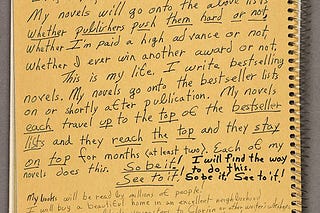 My novels will go onto the above lists
whether publishers push them hard or not,
whether I'm paid a high advance or not,
whether I ever win another award or not.
This is my life. I write bestselling
novels. My novels go onto the bestseller lists
on or shortly after publication. My novels
each travel up to the top of the bestseller
lists and they reach the top and they stay
on top for months (at least two). Each of my
novels does this. So be it! I will find the way
to do this.
See to it! So be it! See to it!
My books will be read by millions of people!
I will buy a beautiful home in an excellent neighborhood
to Clarion or other writer's